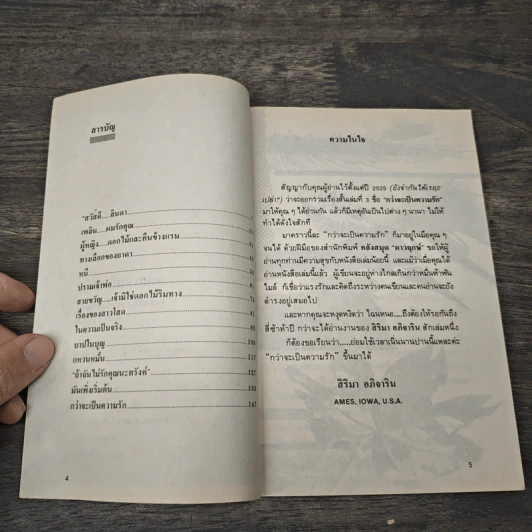 สารบัญ
"สวัสดี....ลินดา
เพลิน....ผมรักคุณ
ผู้หญิง....ดอกไม้และคืนข้างแรม
ทางเลือกของยาดา
หนี
ปรามเจ้าพ่อ
สายขวัญ....เจ้ามิใช่ดอกไม้ริมทาง
เรื่องของสาวโสด
ในความเป็นจริง
บาปในบุญ
แหวนหมั้น
"ถ้าฉันไม่รักคุณนะตรังค์"
มันเพิ่งเริ่มต้น
กว่าจะเป็นความรัก
4
ความในใจ
สัญญากับคุณผู้อ่านไว้ตั้งแต่ปี 2525 (ยังจำกันได้หรือ
เปล่า?) ว่าจะออกรวมเรื่องสั้นเล่มที่ 3 ชื่อ "กว่าจะเป็นความรัก"
มาให้คุณ ๆ ได้อ่านกัน แล้วก็มีเหตุอันเป็นไปต่าง ๆ นานา ไม่ให้
ทำได้ดังใจสักที
มาคราวนี้ละ "กว่าจะเป็นความรัก" ก็มาอยู่ในมือคุณ ๆ
จนได้ ด้วยฝีมือของสำนักพิมพ์ คลังสมุด "ดาวฤกษ์" ขอให้ผู้
อ่านทุกท่านมีความสุขกับหนังสือเล่มน้อยนี้ และแม้ว่าเมื่อคุณได้
อ่านหนังสือเล่มนี้แล้ว ผู้เขียนจะอยู่ห่างไกลเกินกว่าหมื่นห้าพัน
ไมล์ ก็เชื่อว่าแรงรักและคิดถึงระหว่างคนเขียนและคนอ่านจะยัง
ดำรงอยู่เสมอไป
และหากคุณจะหงุดหงิดว่า ไฉนหนอ....ถึงต้องให้รอกันถึง
สี่ซ้าห้าปี กว่าจะได้อ่านงานของ สิริมา อภิจาริน สักเล่มหนึ่ง
ก็ต้องขอเรียนว่า....ย่อมใช้เวลาเนิ่นนานปานนี้แหละค่ะ
"กว่าจะเป็นความรัก" ขึ้นมาได้
สิริมา อภิจาริน
AMES, IOWA, U.S.A.
5